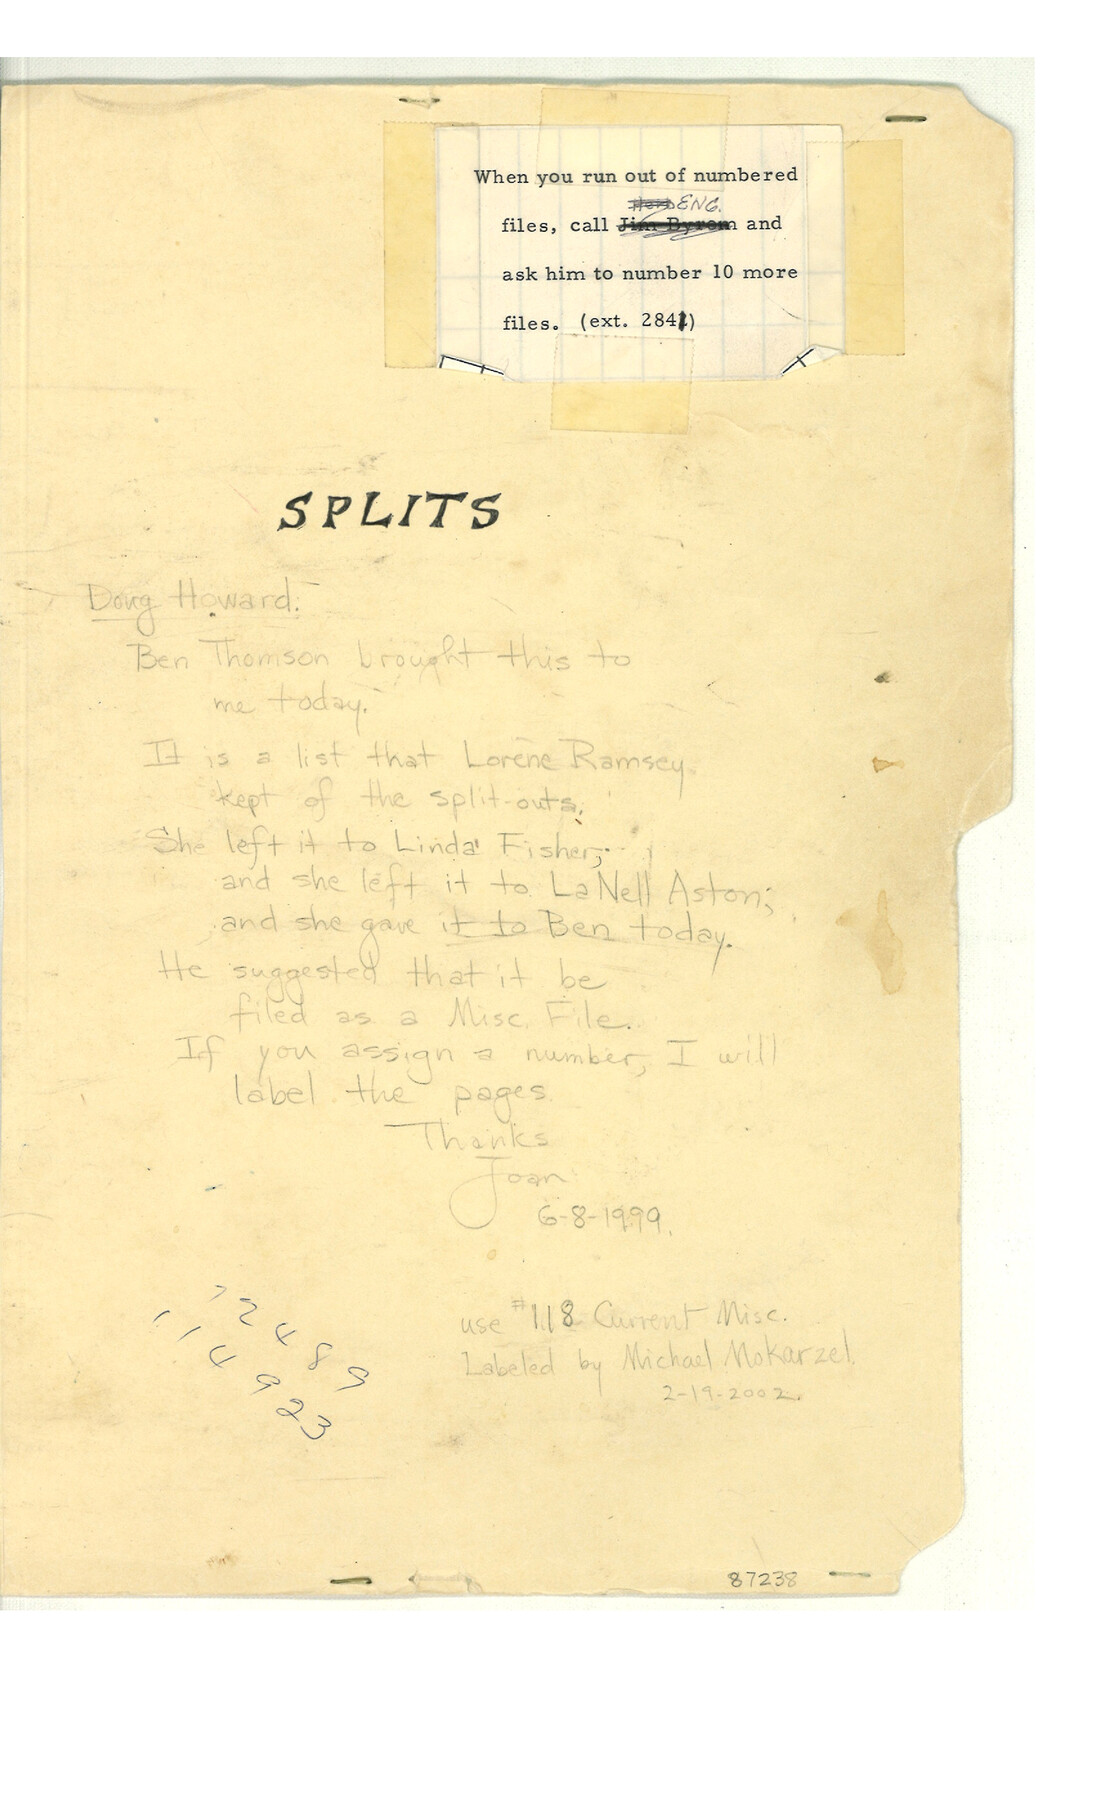 When you run out of numbered
ENG.
files, call Jim Byrom and
ask him to number 10 more
files. (ext. 2841)
SPLITS
Doug Howard:
Ben Thomson brought this to
me today.
It is a list that Lorene Ramsey
kept of the split-outs.
She left it to Linda Fisher;
and she left it to LaNell Aston;
and she gave it to Ben today.
He suggested that it be
filed as a Misc. File.
If you assign a number, I will
label the pages.
Thanks
Joan
6-8-1999.
use #118 Current Misc.
Labeled by Michael Mokarzel.
2-19-2002.
72489
114923
87238